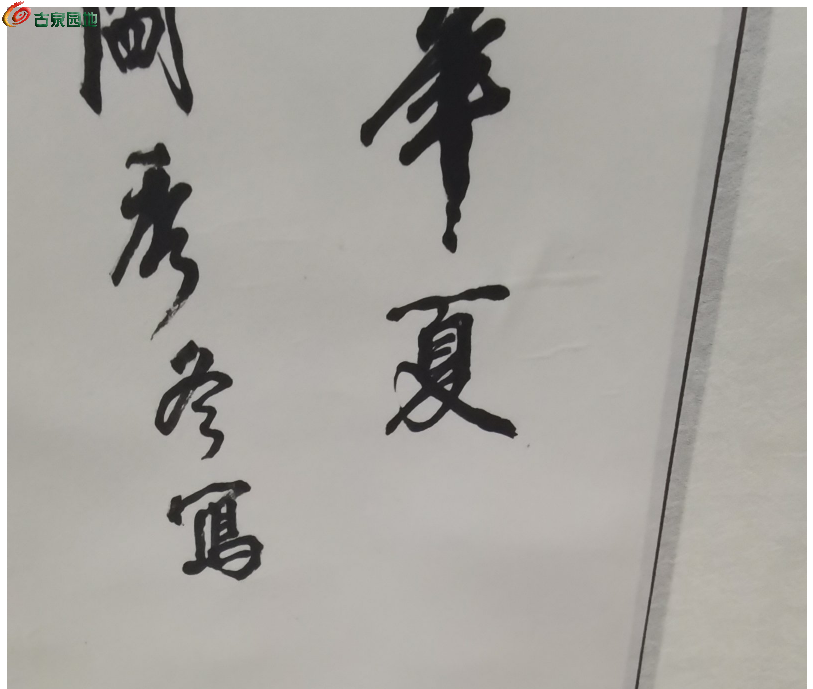 古泉园地
年夏
秀冬寫